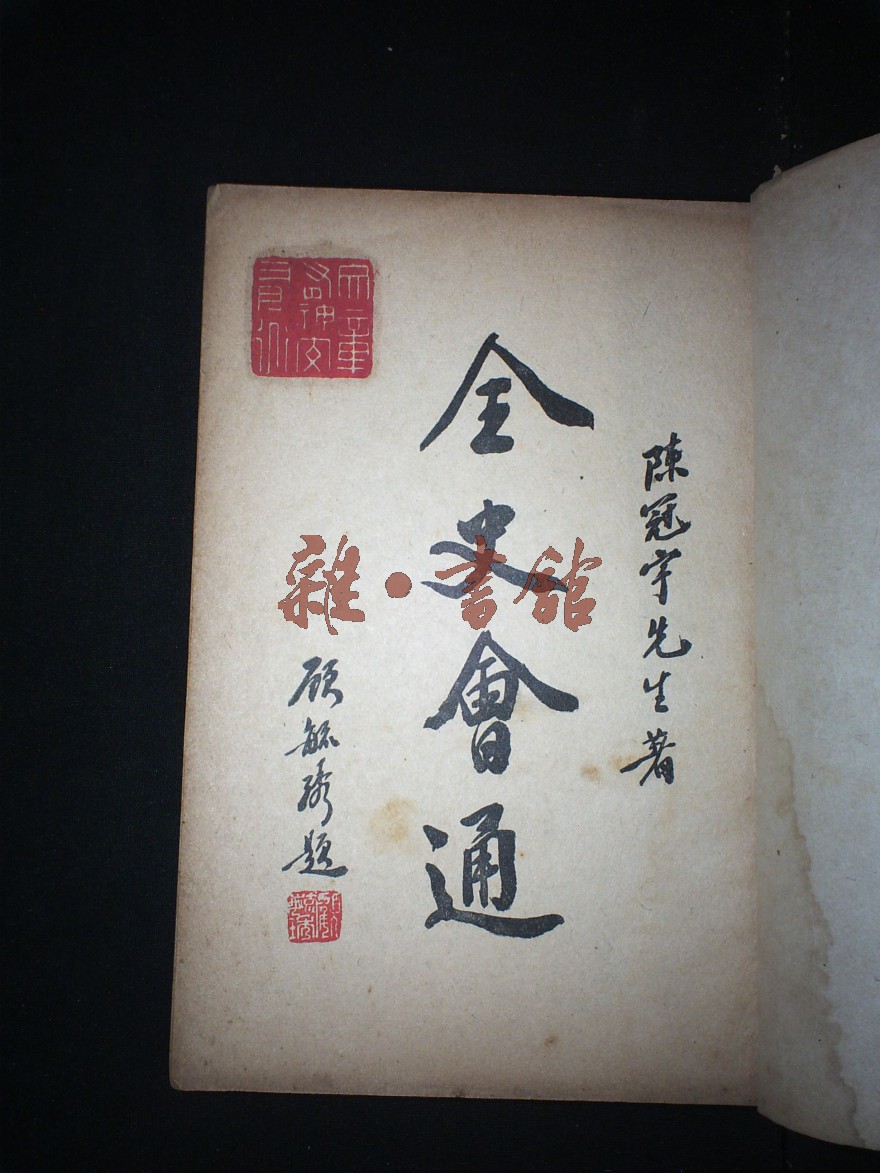 陳冠宇先生著
全史會通
顧毓琇題
雜·書館